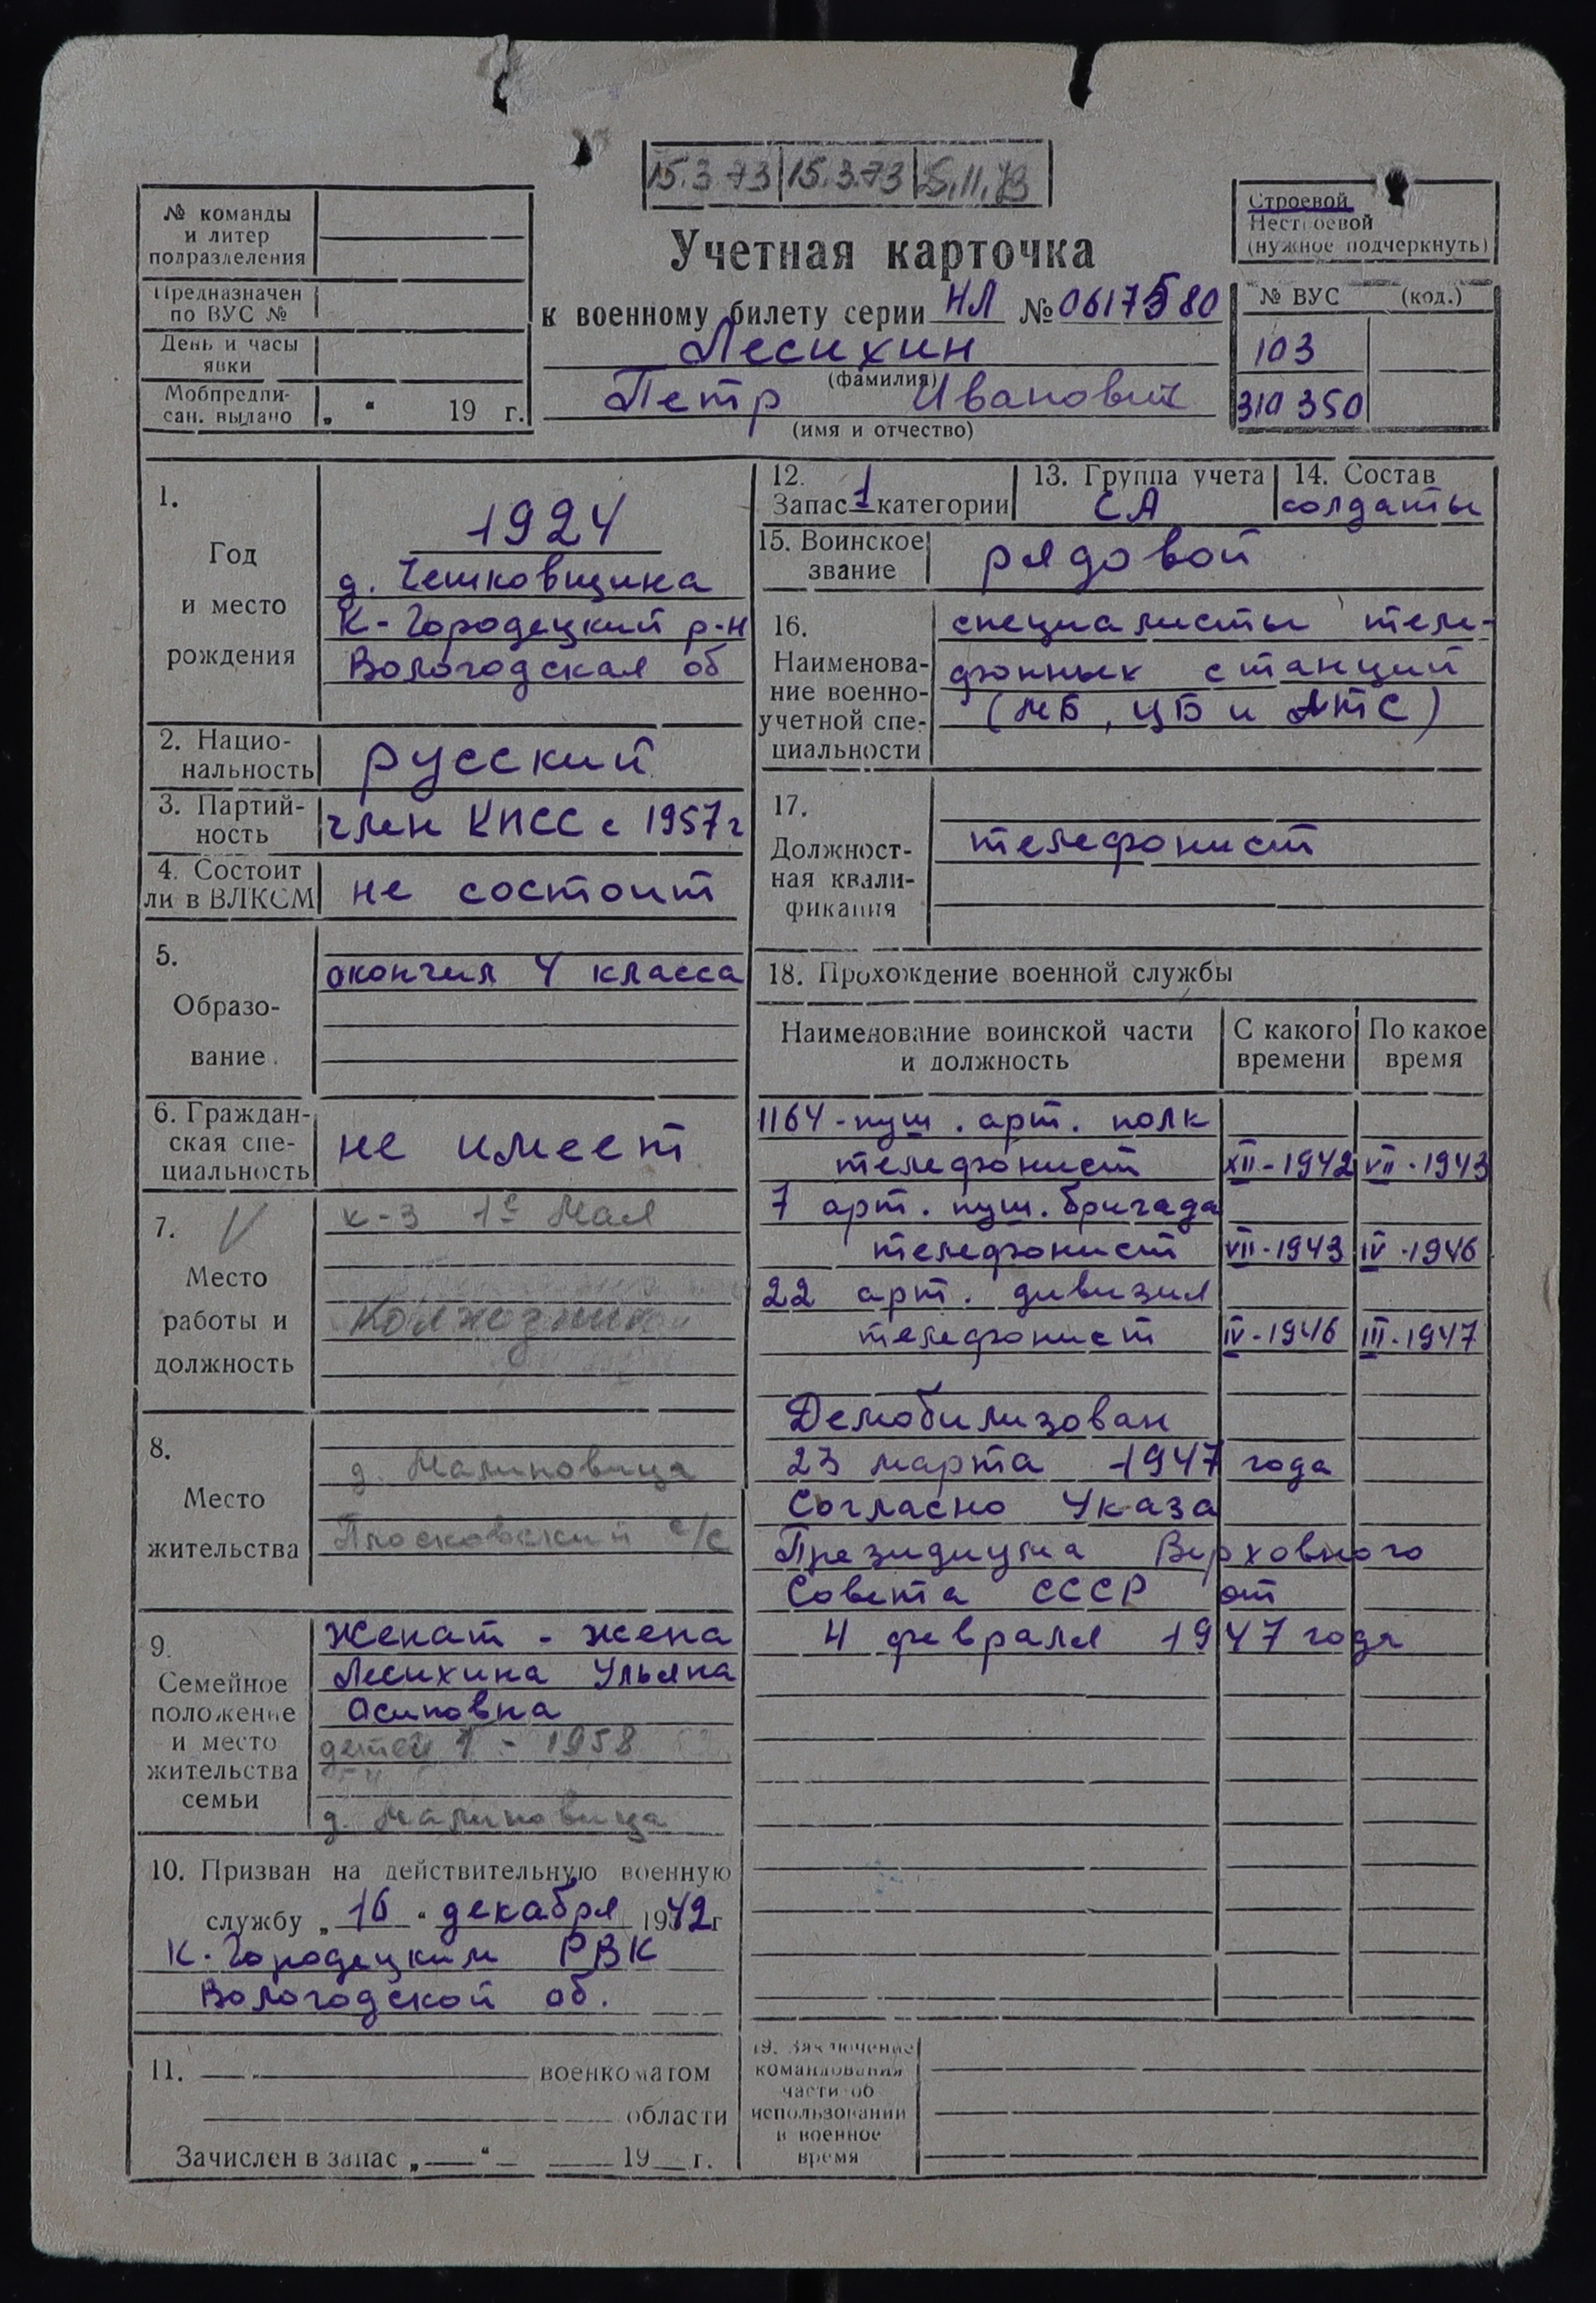 15.3.73 15.3.73 15.11.73
№ команды
и литер
подразделения
Предназначен
по ВУС №
День и часы
явки
Мобпредпи-
сан. выдано „ “ 19 г.
Учетная карточка
к военному билету серии НЛ № 0617580
Лесихин
(фамилия)
Петр Иванович
(имя и отчество)
Строевой
Нестроевой
(нужное подчеркнуть)
№ ВУС (код.)
103
310 350
1.
Год
и место
рождения
1924
д. Чешковщина
К-Городецкий р-н
Вологодская об
2. Нацио-
нальность
русский
3. Партий-
ность
член КПСС с 1957 г
4. Состоит
ли в ВЛКСМ
не состоит
5.
Образо-
вание
окончил 4 класса
6. Граждан-
ская спе-
циальность
не имеет
7.
Место
работы и
должность
к-з 1е Мая
Колхозник
8.
Место
жительства
д. Малиновица
Плосковский с/с
9.
Семейное
положение
и место
жительства
семьи
Женат - жена
Лесихина Ульяна
Осиповна
детей 1 - 1958
д. Малиновица
10. Призван на действительную военную
службу „ 16 “ декабря 1942 г
К-Городецким РВК
Вологодской об.
11. военкоматом
области
Зачислен в запас „ “ 19 г.
12.
Запас 1 категории
13. Группа учета
СА
14. Состав
солдаты
15. Воинское
звание
рядовой
16.
Наименова-
ние военно-
учетной спе-
циальности
специалисты теле-
фонных станций
(МБ, ЦБ и АТС)
17.
Должност-
ная квали-
фикация
телефонист
18. Прохождение военной службы
Наименование воинской части
и должность
С какого
времени
По какое
время
1164 - пуш. арт. полк
телефонист XII - 1942 VII - 1943
7 арт. пуш. бригада
телефонист VII - 1943 IV - 1946
22 арт. дивизия
телефонист IV - 1946 III - 1947
Демобилизован
23 марта 1947 года
Согласно Указа
Президиума Верховного
Совета СССР от
4 февраля 1947 года
19. Заключение
командования
части об
использовании
в военное
время